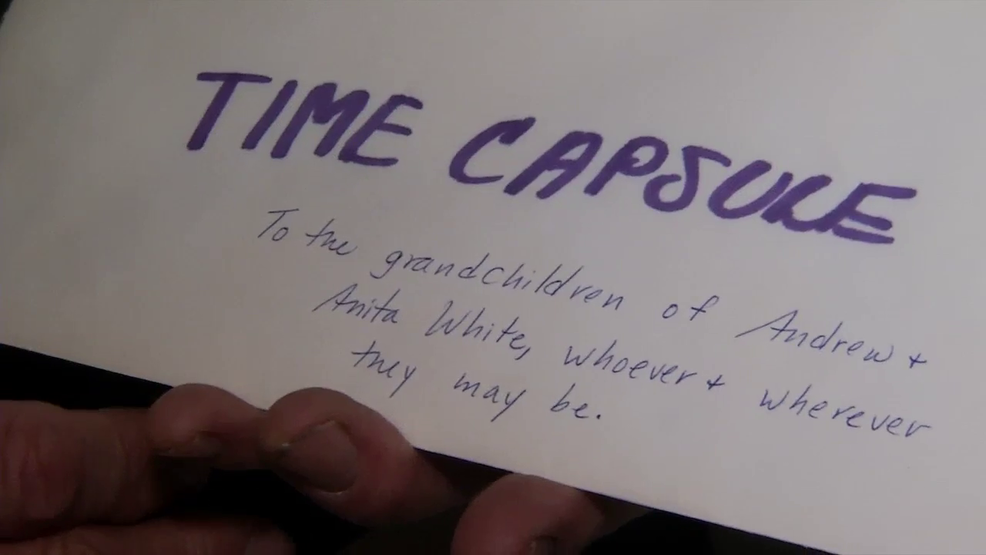 TIME CAPSULE
To the grandchildren of Andrew +
Anita White, whoever + wherever
they may be.